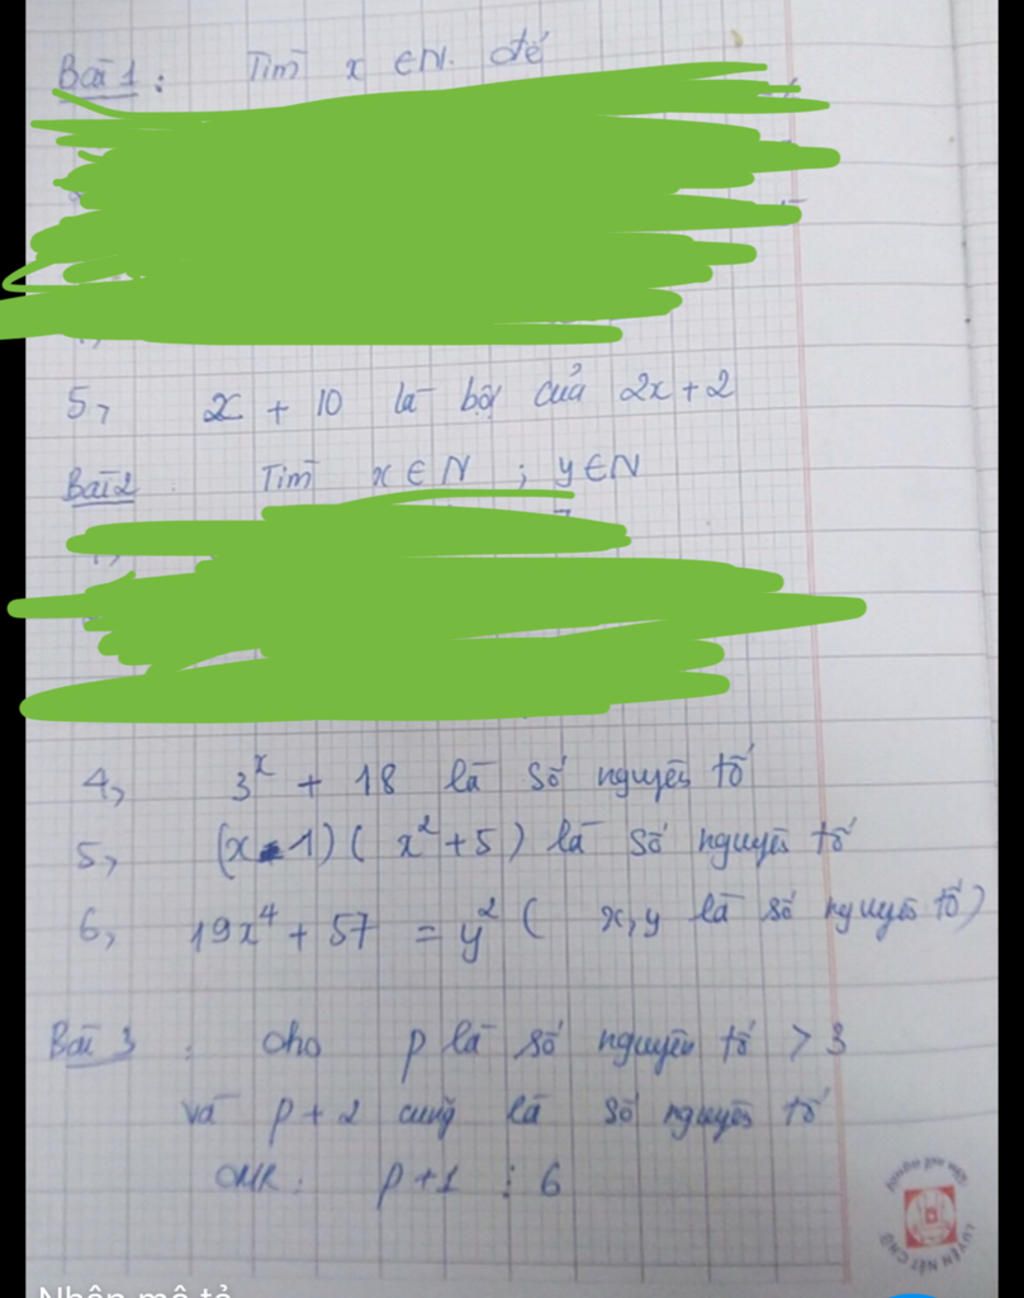 Bài 1: Tìm x ∈ N. để
5, x + 10 là bội của 2x + 2
Bài 2 Tìm x ∈ N ; y ∈ N
4, 3^x + 18 là số nguyên tố
5, (x - 1)( x² + 5 ) là số nguyên tố
6, 19x⁴ + 57 = y² ( x, y là số nguyên tố)
Bài 3 : cho p là số nguyên tố > 3
và p + 2 cũng là số nguyên tố
CMR: p + 1 ⋮ 6
LUYỆN NÉT CHỮ
Nhập mô tả